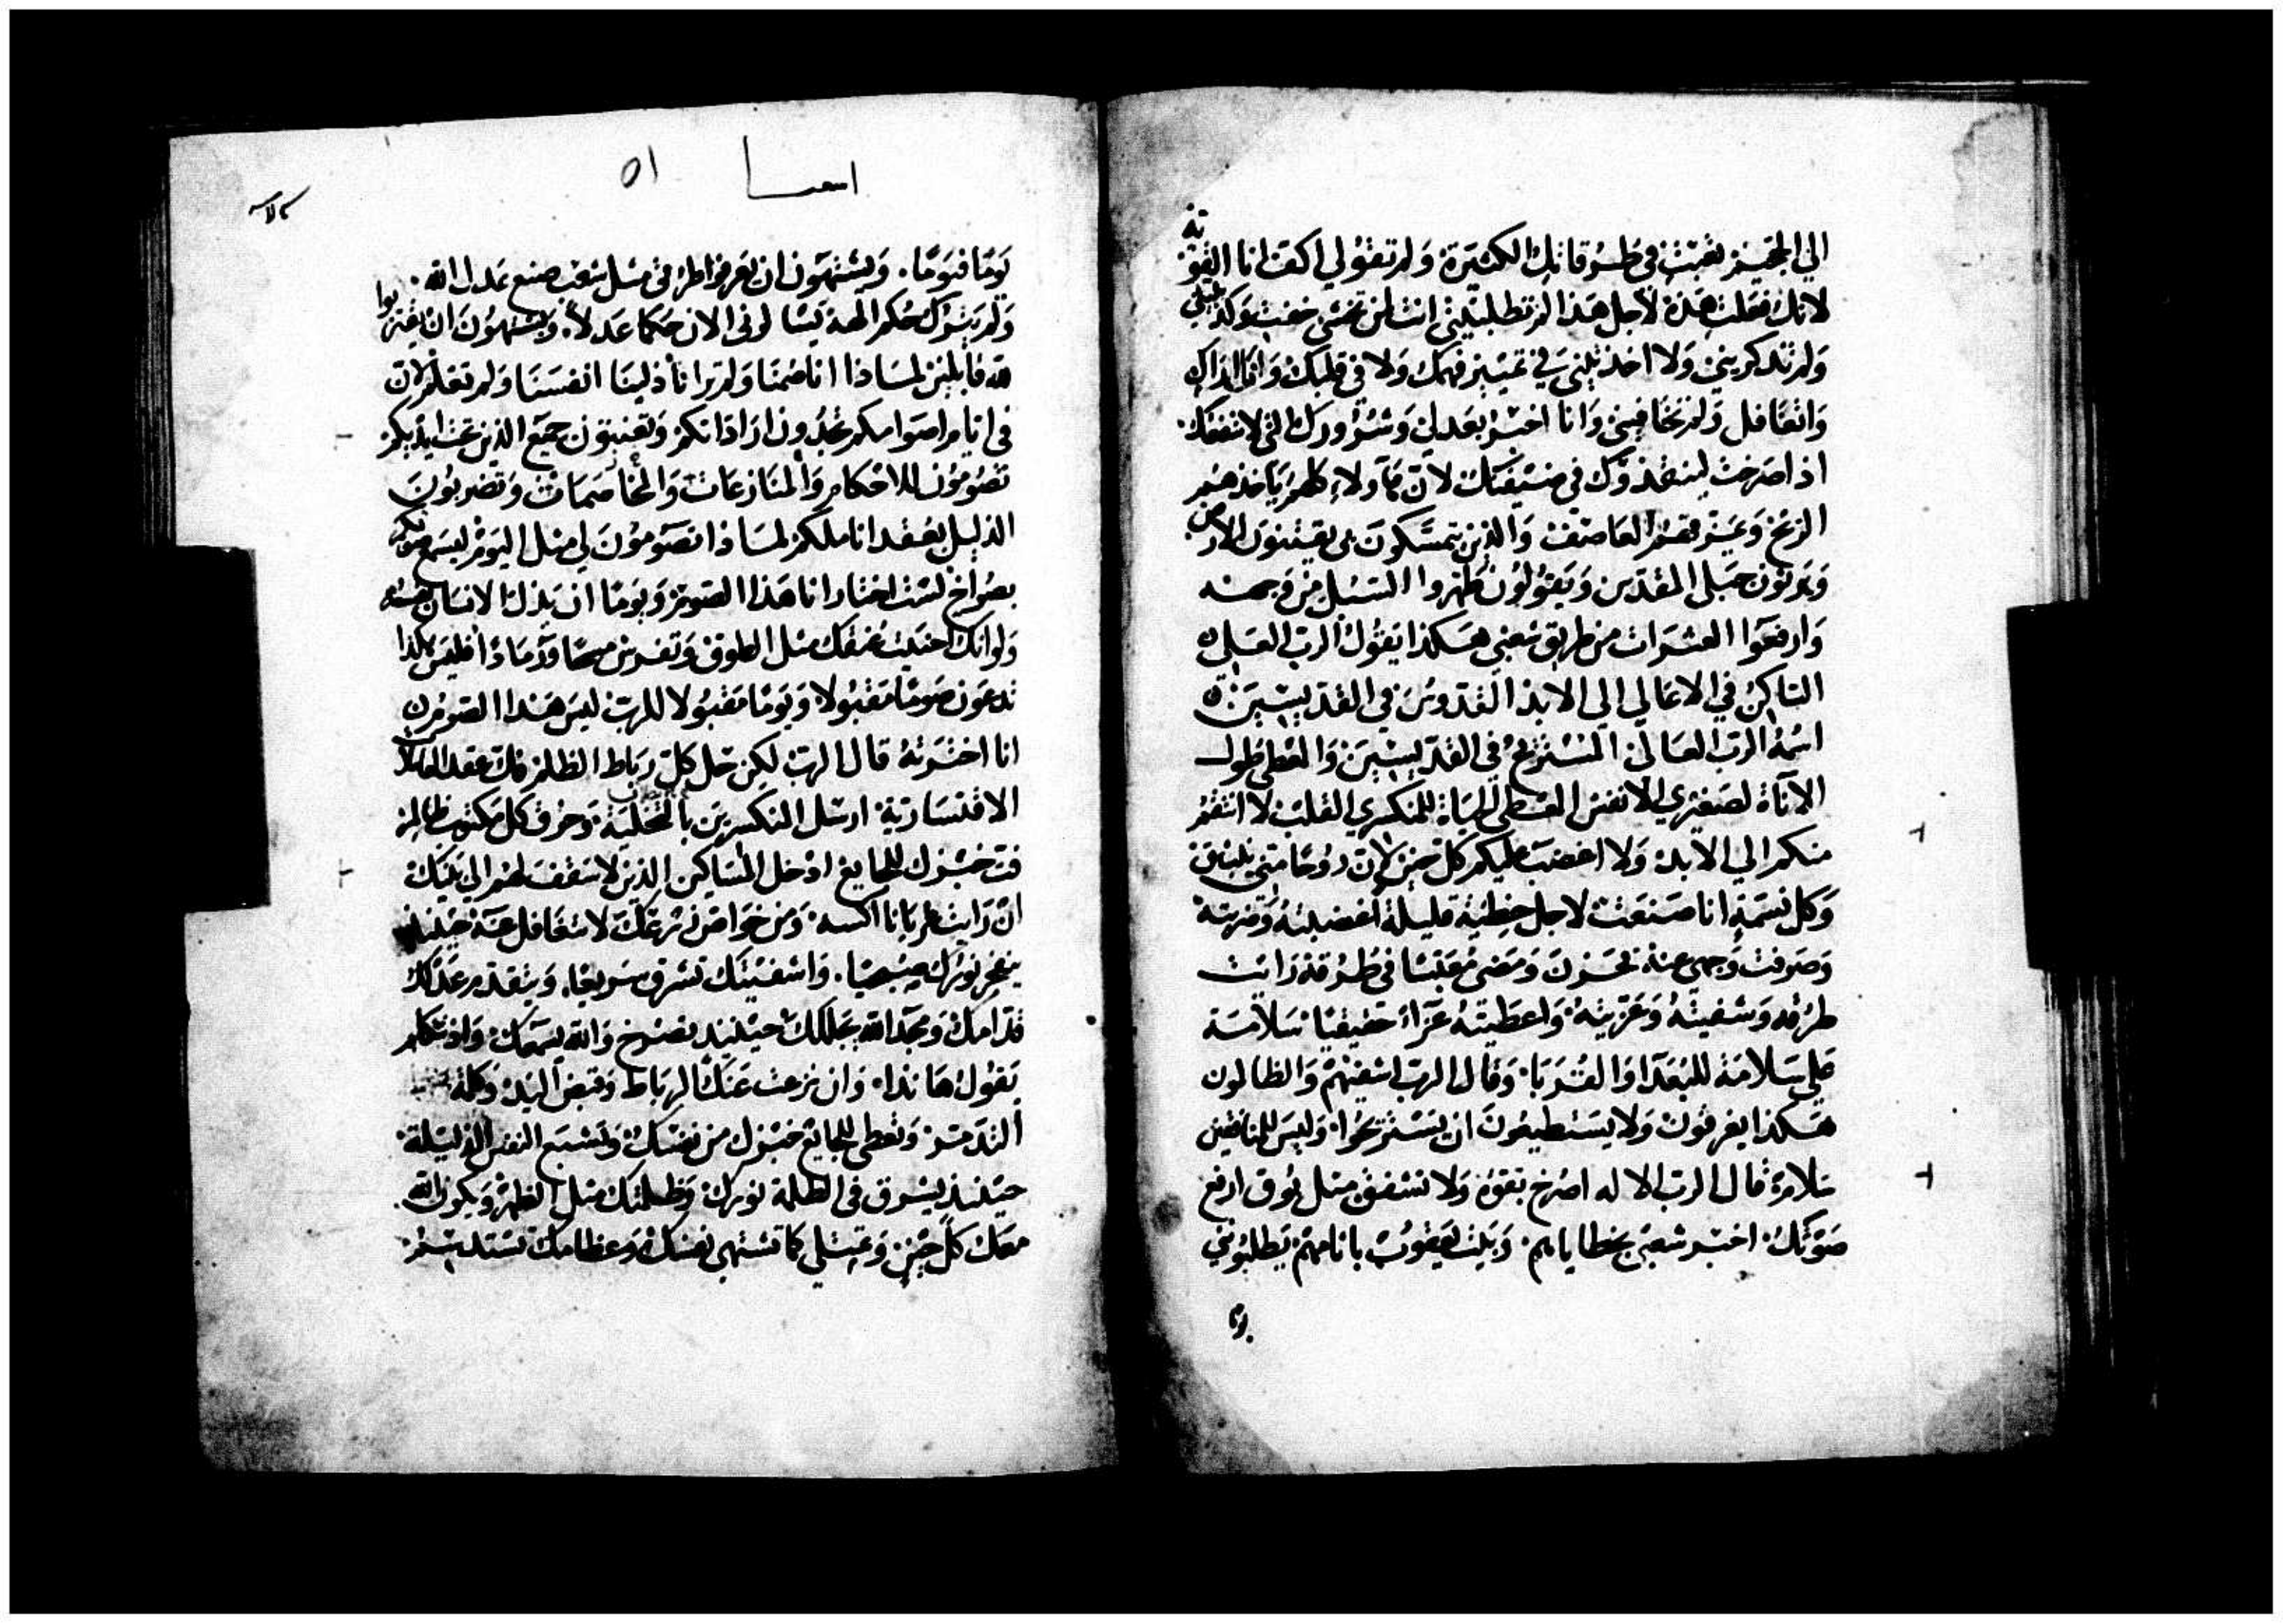 الي الجحيم تعبتِ في طرقاتك الكثيرة ولم تقولي اكفّ انا القوية
لانك فعلت هذه لاجل هذا لم تطلبيني انت لمن تخشي خفت وكذبتيني
ولم تذكريني ولا اخذتيني في تمييز فهمك ولا في قلبك وانا اراك
واتغافل ولم تخافيني وانا اخبر بعدلي وشرورك التي لا تنفعك.
اذا صرخت لينقذوك في ضيقتك لان هآولاء كلهم ياخذهم
الريح وعسر تقسم العاصف والذين يتمسكون بي يقتنون الارض
ويرثون جبلي المقدس ويقولون طهروا السبل من وجهه
وارفعوا العثرات من طريق شعبي هكذا يقول الرب العلي
الساكن في الاعالي الي الابد القدوس في القديسين
اسمه الرب العالي المستريح في القديسين والمعطي طول
الاناة لصغيري الانفس المعطي الحياة للمنكسري القلب لا انتقم
منكم الي الابد ولا اغضب عليكم كل حين لان روحا مني ينبثق
وكل نسمة انا صنعت لاجل خطية قليلة اغضبته وضربته
وصرفت وجهي عنه فحزن ومضي معبسا في طرقه رايت
طرقه وشفيته وعزيته واعطيته عزاء حقيقيا سلامة
علي سلامة للبعدا والقربا وقال الرب اشفيهم والظالمون
هكذا يغرقون ولا يستطيعون ان يستريحوا وليس للمنافقين
سلامة قال الرب الاله اصرخ بقوة ولا تشفق مثل بوق ارفع
صوتك اخبر شعبي بخطاياهم وبيت يعقوب باثامهم يطلبوني
يوما
اسعيا ٥١
يوما فيوما. ويشتهون ان يعرفوا طرقي مثل شعب صنع عدل الله.
ولم يترك حكم الهه يسالوني الان حكما عدلا ويشتهون ان يقتربوا
لله قايلين لماذا انا صمنا ولم تر اناّ ذلينا انفسنا ولم تعلم لان
في ايام اصوامكم تجدون اراداتكم وتعنتون جميع الذين تحت ايديكم
تصومون للاحكام والمنازعات والمخاصمات وتضربون
الذليل لماذا تصومون لي مثل اليوم ليسمع صوتكم
بصراخ لست اختار انا هذا الصوم ويوما ان يذل الانسان نفسه
ولو انك احنيت عنقك مثل الطوق وتفرش مسحا ورمادا فليس هكذا
تدعون صوما مقبولا ويوما مقبولا للرب ليس هذا الصوم
انا اخترته قال الرب لكن حل كل رباط الظلم فك عقد المعاملات
الاقتسارية ارسل المنكسرين بالتخلية وخرق كل مكتوب ظالم
فت خبزك للجايع ادخل المساكين الذين لا سقف لهم الي بيتك
ان رايت عريانا اكسه ومن خواص زرعك لا تتغافل عنه حينيذ
ينفجر نورك صبحيا. واشفيتك تشرق سريعا. ويتقدم عدلك
قدامك ومجد الله يجللك حينيذ تصرخ والله يسمعك واذ تتكلم
يقول هانذا وان نزعت عنك الرباط وقبض اليد وكلمة
التذمر وتعطي للجايع خبزك من نفسك وتشبع النفس الذليلة
حينيذ يشرق في الظلمة نورك وظلمتك مثل الظهر ويكون الله
معك كل حين وتمتلي كما تشتهي نفسك وعظامك تستد بسم